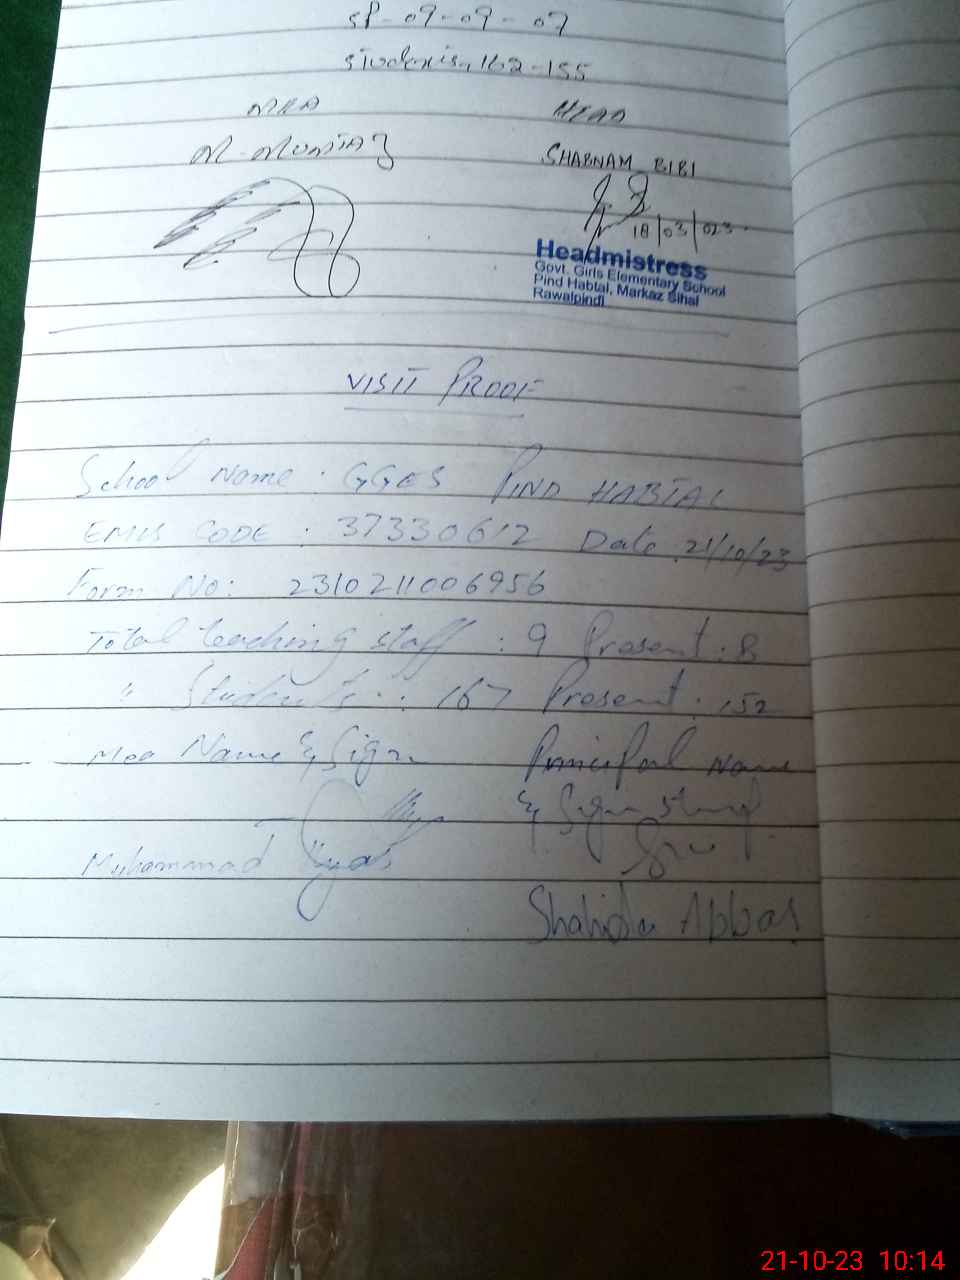 SP-09-09-07
Students, 162-155
MEA HEAD
M-MUMTAZ SHABNAM BIBI
18/03/023
Headmistress
Govt. Girls Elementary School
Pind Habtal, Markaz Sihal
Rawalpindi
VISIT PROOF
School Name: GGES PIND HABTAL
EMIS CODE: 37330612 Date: 21/10/23
Form No: 2310211006956
Total teaching staff: 9 Present: 8
" Students: 167 Present: 152
Mea Name & Sign Principal Name
& Sign stamp
Muhammad Ilyas
Shahida Abbas
21-10-23 10:14